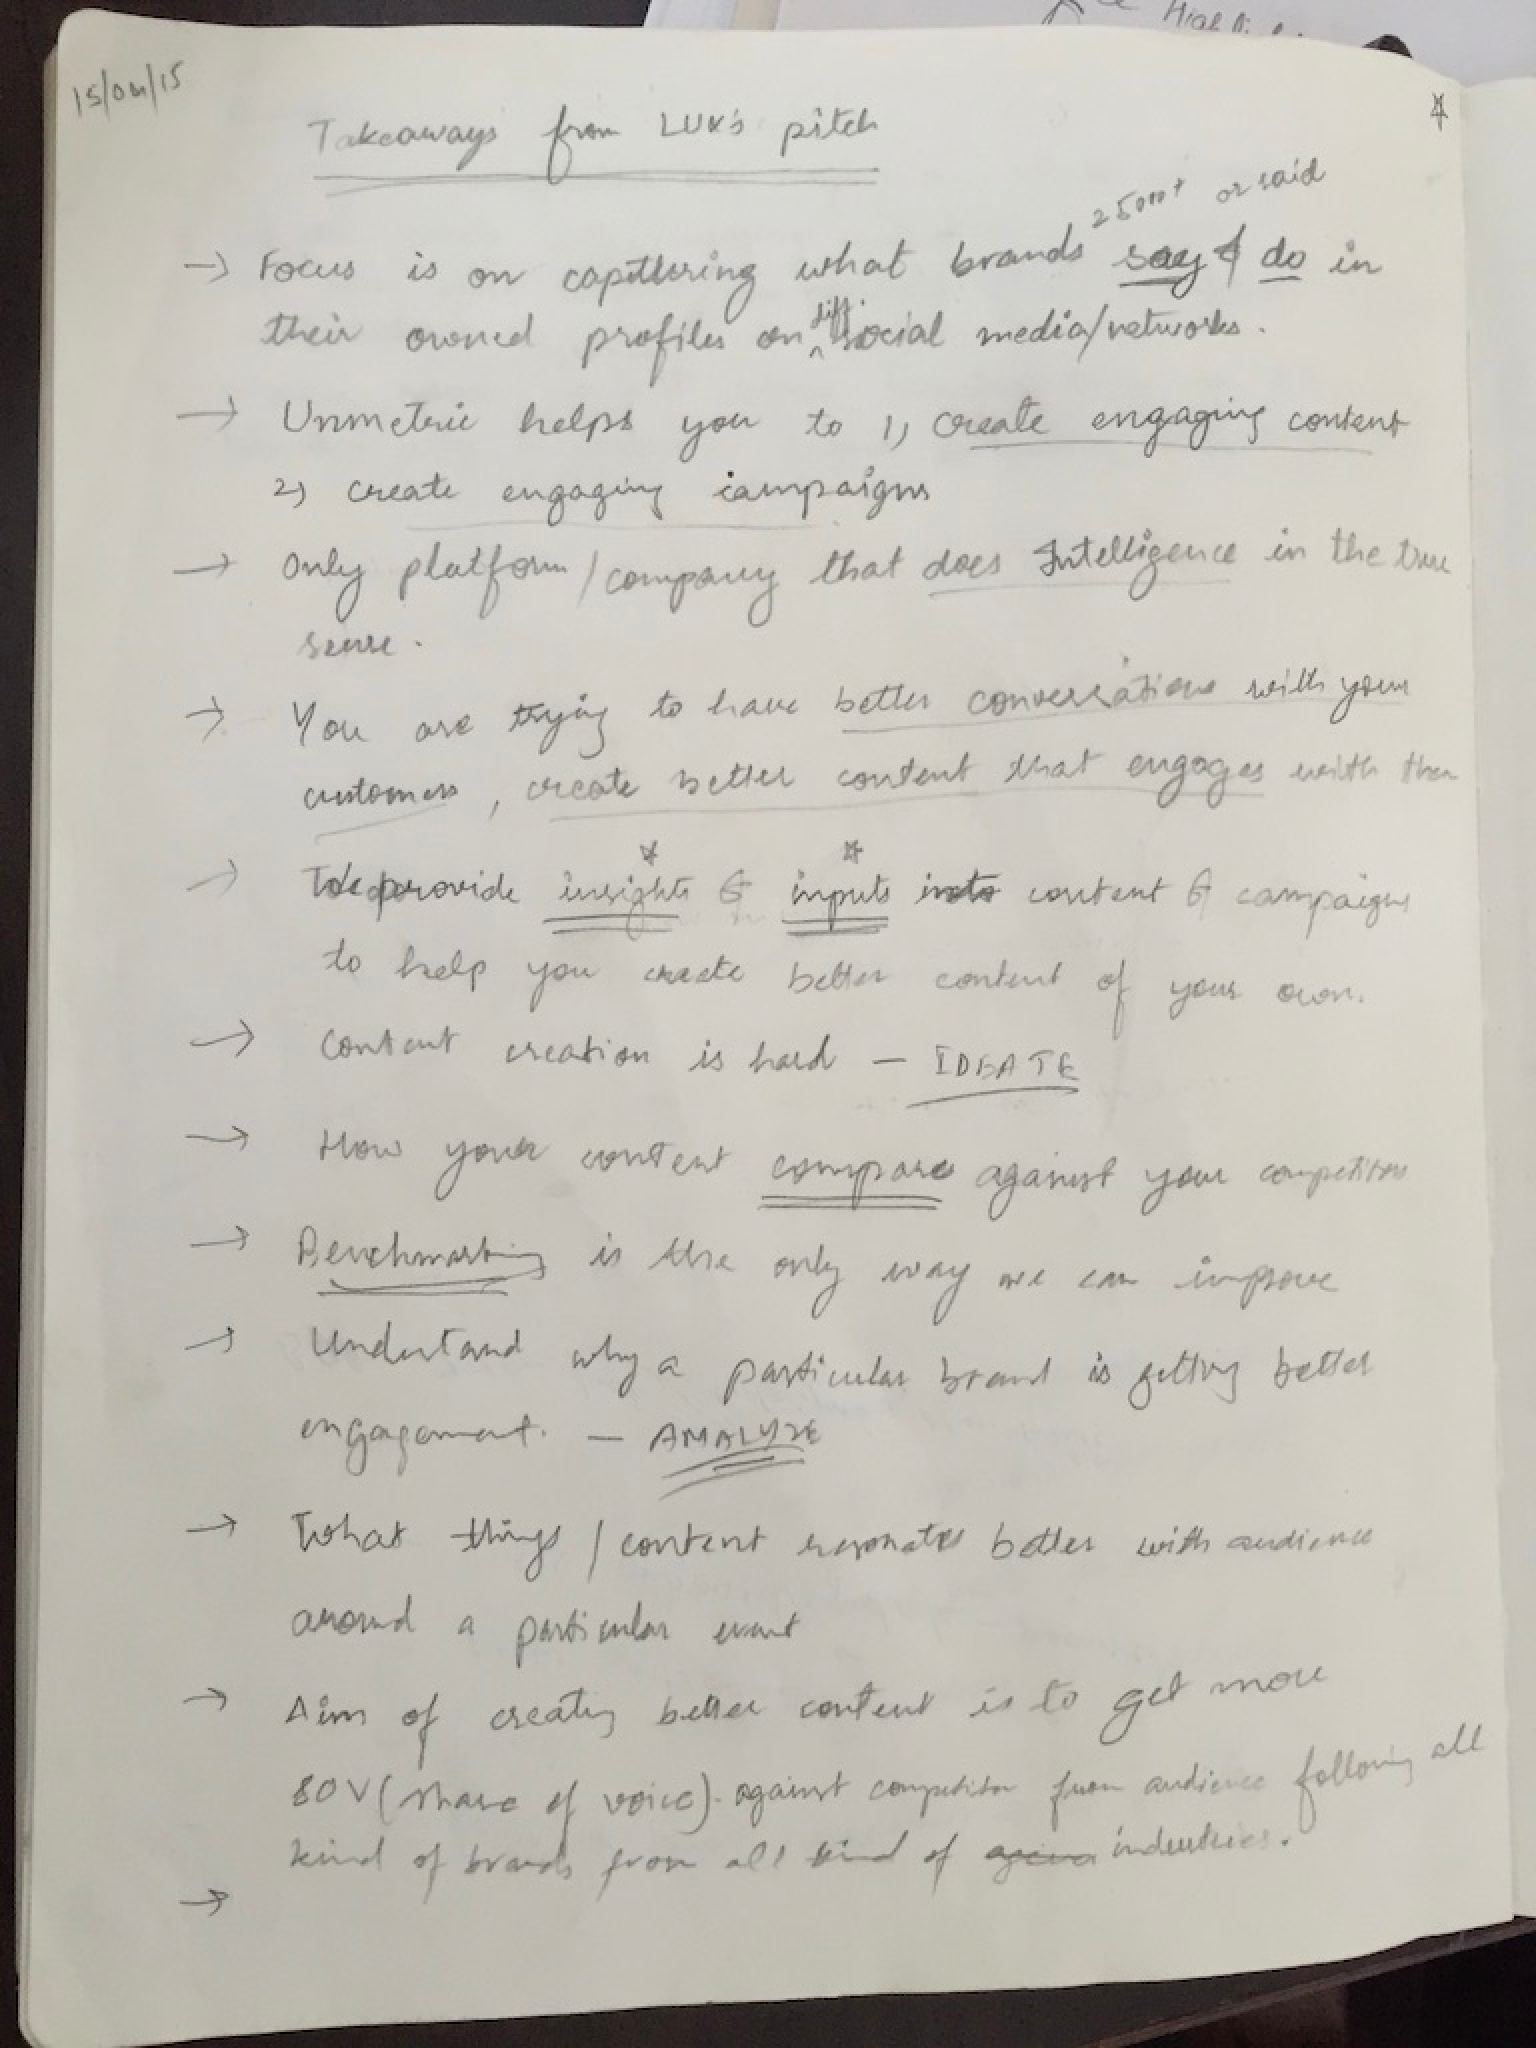 15/04/15
Takeaways from LUX's pitch
25000+ or said
→ Focus is on capturing what brands say & do in
their owned profiles on diff. social media/networks.
→ Unmetric helps you to 1) create engaging content
2) create engaging campaigns
→ Only platform/company that does Intelligence in the true
sense.
→ You are trying to have better conversations with your
customers, create better content that engages with them
→ We provide insights & inputs into content & campaigns
to help you create better content of your own.
→ Content creation is hard – IDEATE
→ How your content compare against your competitors
→ Benchmarking is the only way we can improve
→ Understand why a particular brand is getting better
engagement. – ANALYZE
→ What things / content resonates better with audience
around a particular event
→ Aim of creating better content is to get more
SOV (share of voice). against competitor from audience following all
kind of brands from all kind of industries.
→